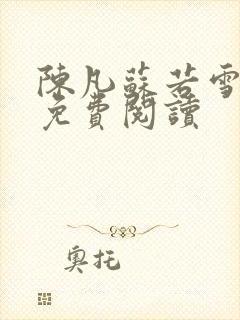 陳凡蘇若雪
免費閱讀
奧托